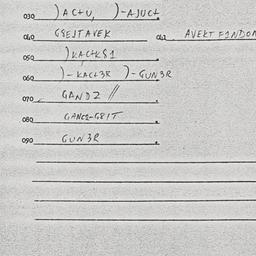 030 )ACTU, )-AJUCT
040 GSEJTAVEK 041 AVEKT FINDOM
050 )KACTKS1
060 )-KACT3R )-GUN3R
070 GANDZ //
080 GANCZ-G8IT
090 GUN3R